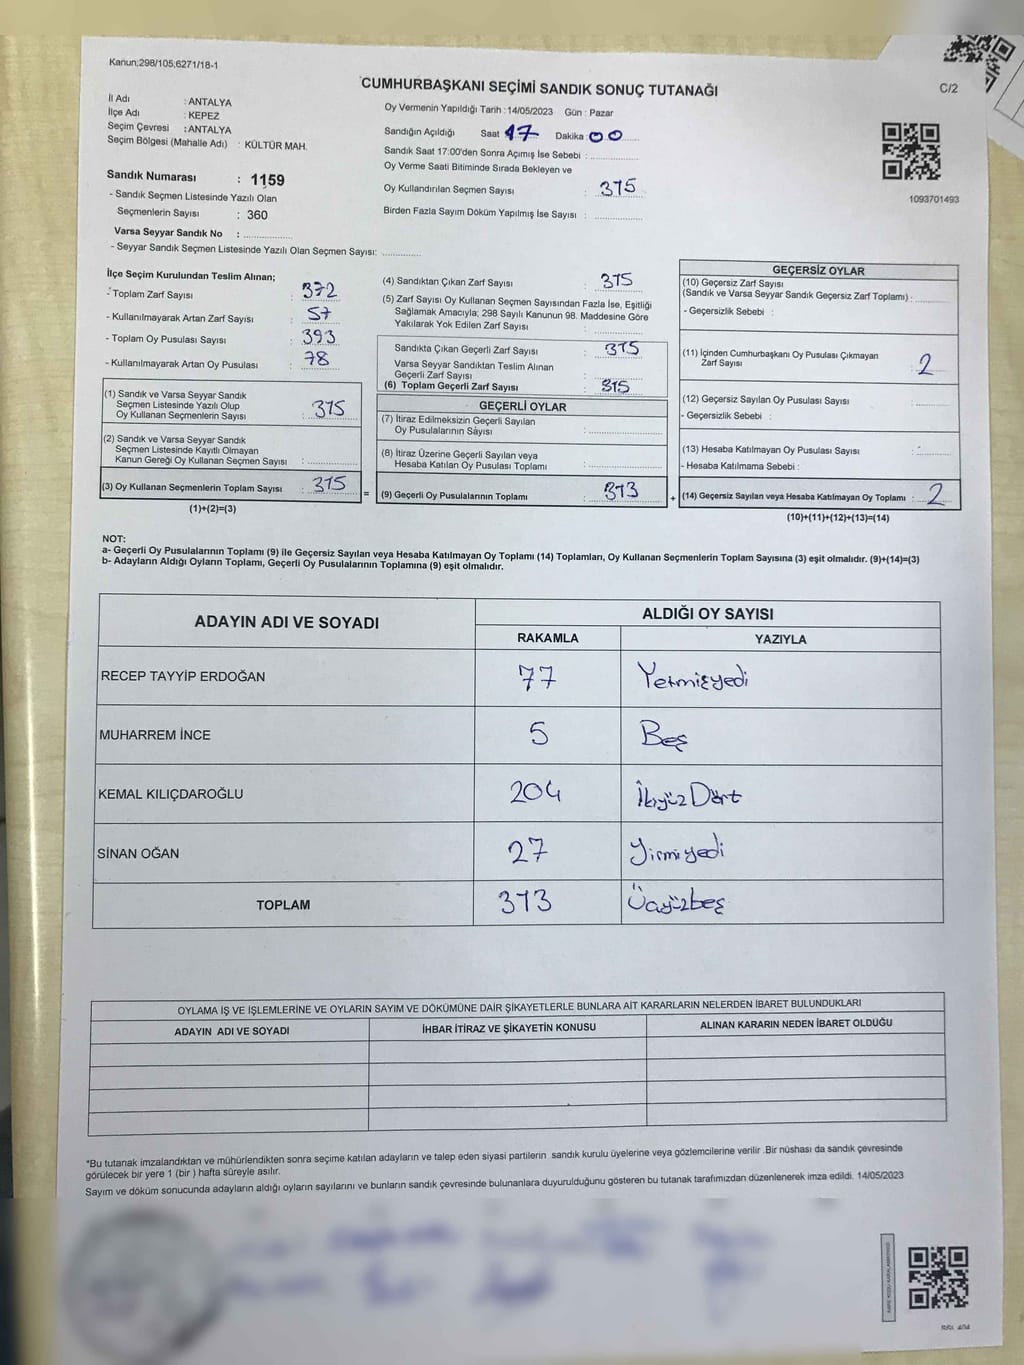 Kanun;298/105;6271/18-1
CUMHURBAŞKANI SEÇİMİ SANDIK SONUÇ TUTANAĞI
C/2
İl Adı : ANTALYA
İlçe Adı : KEPEZ
Seçim Çevresi : ANTALYA
Seçim Bölgesi (Mahalle Adı) : KÜLTÜR MAH.
Oy Vermenin Yapıldığı Tarih : 14/05/2023 Gün : Pazar
Sandığın Açıldığı Saat 17 Dakika : 00
Sandık Saat 17:00'den Sonra Açımış İse Sebebi :
Oy Verme Saati Bitiminde Sırada Bekleyen ve
Oy Kullandırılan Seçmen Sayısı : 315
Birden Fazla Sayım Döküm Yapılmış İse Sayısı :
1093701493
Sandık Numarası : 1159
- Sandık Seçmen Listesinde Yazılı Olan
Seçmenlerin Sayısı : 360
Varsa Seyyar Sandık No :
- Seyyar Sandık Seçmen Listesinde Yazılı Olan Seçmen Sayısı:
İlçe Seçim Kurulundan Teslim Alınan;
- Toplam Zarf Sayısı : 372
- Kullanılmayarak Artan Zarf Sayısı : 57
- Toplam Oy Pusulası Sayısı : 393
- Kullanılmayarak Artan Oy Pusulası : 78
(1) Sandık ve Varsa Seyyar Sandık
Seçmen Listesinde Yazılı Olup
Oy Kullanan Seçmenlerin Sayısı : 315
(2) Sandık ve Varsa Seyyar Sandık
Seçmen Listesinde Kayıtlı Olmayan
Kanun Gereği Oy Kullanan Seçmen Sayısı :
(3) Oy Kullanan Seçmenlerin Toplam Sayısı : 315
(1)+(2)=(3)
=
(4) Sandıktan Çıkan Zarf Sayısı : 315
(5) Zarf Sayısı Oy Kullanan Seçmen Sayısından Fazla İse, Eşitliği
Sağlamak Amacıyla; 298 Sayılı Kanunun 98. Maddesine Göre
Yakılarak Yok Edilen Zarf Sayısı :
Sandıkta Çıkan Geçerli Zarf Sayısı : 315
Varsa Seyyar Sandıktan Teslim Alınan
Geçerli Zarf Sayısı :
(6) Toplam Geçerli Zarf Sayısı : 315
GEÇERLİ OYLAR
(7) İtiraz Edilmeksizin Geçerli Sayılan
Oy Pusulalarının Sayısı :
(8) İtiraz Üzerine Geçerli Sayılan veya
Hesaba Katılan Oy Pusulası Toplamı :
(9) Geçerli Oy Pusulalarının Toplamı : 313
+
GEÇERSİZ OYLAR
(10) Geçersiz Zarf Sayısı
(Sandık ve Varsa Seyyar Sandık Geçersiz Zarf Toplamı) :
- Geçersizlik Sebebi :
(11) İçinden Cumhurbaşkanı Oy Pusulası Çıkmayan
Zarf Sayısı : 2
(12) Geçersiz Sayılan Oy Pusulası Sayısı :
- Geçersizlik Sebebi :
(13) Hesaba Katılmayan Oy Pusulası Sayısı :
- Hesaba Katılmama Sebebi :
(14) Geçersiz Sayılan veya Hesaba Katılmayan Oy Toplamı : 2
(10)+(11)+(12)+(13)=(14)
NOT:
a- Geçerli Oy Pusulalarının Toplamı (9) ile Geçersiz Sayılan veya Hesaba Katılmayan Oy Toplamı (14) Toplamları, Oy Kullanan Seçmenlerin Toplam Sayısına (3) eşit olmalıdır. (9)+(14)=(3)
b- Adayların Aldığı Oyların Toplamı, Geçerli Oy Pusulalarının Toplamına (9) eşit olmalıdır.
ADAYIN ADI VE SOYADI ALDIĞI OY SAYISI
RAKAMLA YAZIYLA
RECEP TAYYİP ERDOĞAN 77 Yetmişyedi
MUHARREM İNCE 5 Beş
KEMAL KILIÇDAROĞLU 204 İkiyüz Dört
SİNAN OĞAN 27 Yirmiyedi
TOPLAM 313 Üçyüzbeş
OYLAMA İŞ VE İŞLEMLERİNE VE OYLARIN SAYIM VE DÖKÜMÜNE DAİR ŞİKAYETLERLE BUNLARA AİT KARARLARIN NELERDEN İBARET BULUNDUKLARI
ADAYIN ADI VE SOYADI İHBAR İTİRAZ VE ŞİKAYETİN KONUSU ALINAN KARARIN NEDEN İBARET OLDUĞU
*Bu tutanak imzalandıktan ve mühürlendikten sonra seçime katılan adayların ve talep eden siyasi partilerin sandık kurulu üyelerine veya gözlemcilerine verilir .Bir nüshası da sandık çevresinde
görülecek bir yere 1 (bir ) hafta süreyle asılır.
Sayım ve döküm sonucunda adayların aldığı oyların sayılarını ve bunların sandık çevresinde bulunanlara duyurulduğunu gösteren bu tutanak tarafımızdan düzenlenerek imza edildi. 14/05/2023